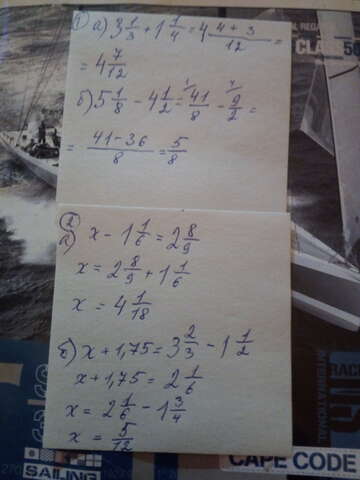 ① а) 3 1/3 + 1 1/4 = 4 (4 + 3)/12 =
= 4 7/12
б) 5 1/8 - 4 1/2 = 41/8 - 9/2 =
= (41 - 36)/8 = 5/8
②
а) x - 1 1/6 = 2 8/9
x = 2 8/9 + 1 1/6
x = 4 1/18
б) x + 1,75 = 3 2/3 - 1 1/2
x + 1,75 = 2 1/6
x = 2 1/6 - 1 3/4
x = 5/12
SAILING
CAPE CODE